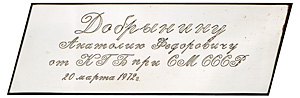 Добрынину
Анатолию Федоровичу
от КГБ при СМ СССР
20 марта 1972г.